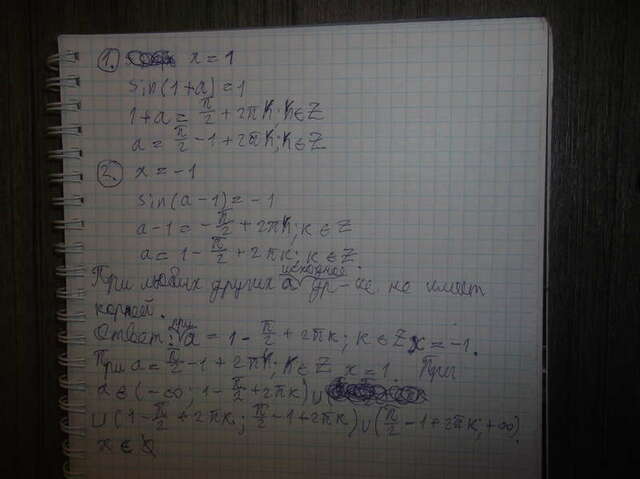 1. x = 1
sin(1+a) = 1
1+a = π/2 + 2πk; k∈Z
a = π/2 - 1 + 2πk; k∈Z
2. x = -1
sin(a-1) = -1
a-1 = -π/2 + 2πk; k∈Z
a = 1 - π/2 + 2πk; k∈Z
При любых других a исходное ур-ие не имеет
корней.
Ответ: при a = 1 - π/2 + 2πk; k∈Z x = -1.
При a = π/2 - 1 + 2πk; k∈Z x = 1. При
a∈(-∞; 1 - π/2 + 2πk) ∪
∪ (1 - π/2 + 2πk; π/2 - 1 + 2πk) ∪ (π/2 - 1 + 2πk; +∞)
x ∈